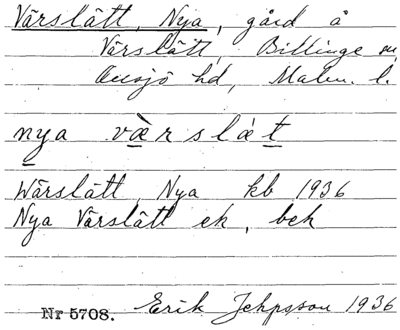 Vårslätt, Nya, gård å
Vårslätt, Billinge sn,
Onsjö hd, Malm. l.
nya væ̀rslàt
Wårslätt, Nya kb 1936
Nya Vårslätt ek, bek
Nr 5708. Erik Jeppsson 1936